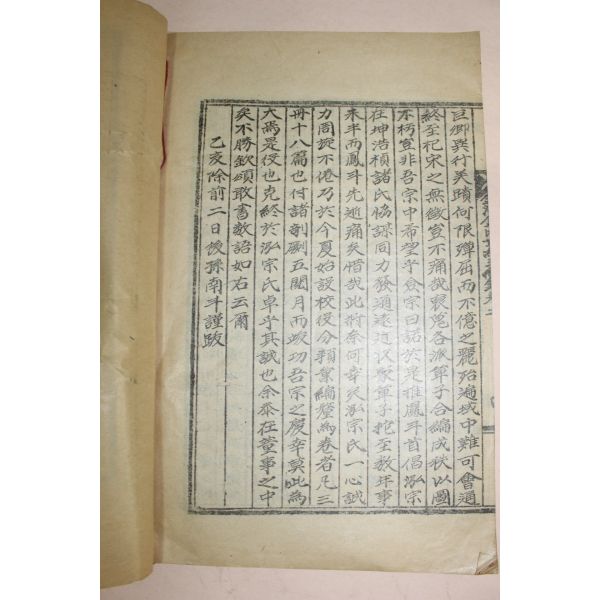 巨卿異行美蹟何限殫屈而不億之麗殆遍域中難可會通
終至杞宋之無徵豈不痛哉裒蒐各派單子合編成秩以圖
不朽豈非吾宗中希望乎僉宗曰諾於是推鳳斗首倡泓宗
在坤浩楨諸氏協謀同力發通遠近收聚單子抱至数年事
未半而鳳斗先逝痛矣惜哉此將奈何幸矣泓宗氏一心誠
力周旋不倦乃於今夏始設校役分類彙編釐爲卷者凡三
冊十八篇也付諸剞劂五閱月而竣功吾宗之慶幸莫此爲
大焉是役也克終於泓宗氏卓乎其誠也余忝在董事之中
矣不勝欽頌敢書数語如右云爾
乙亥除前二日後孫南斗謹跋